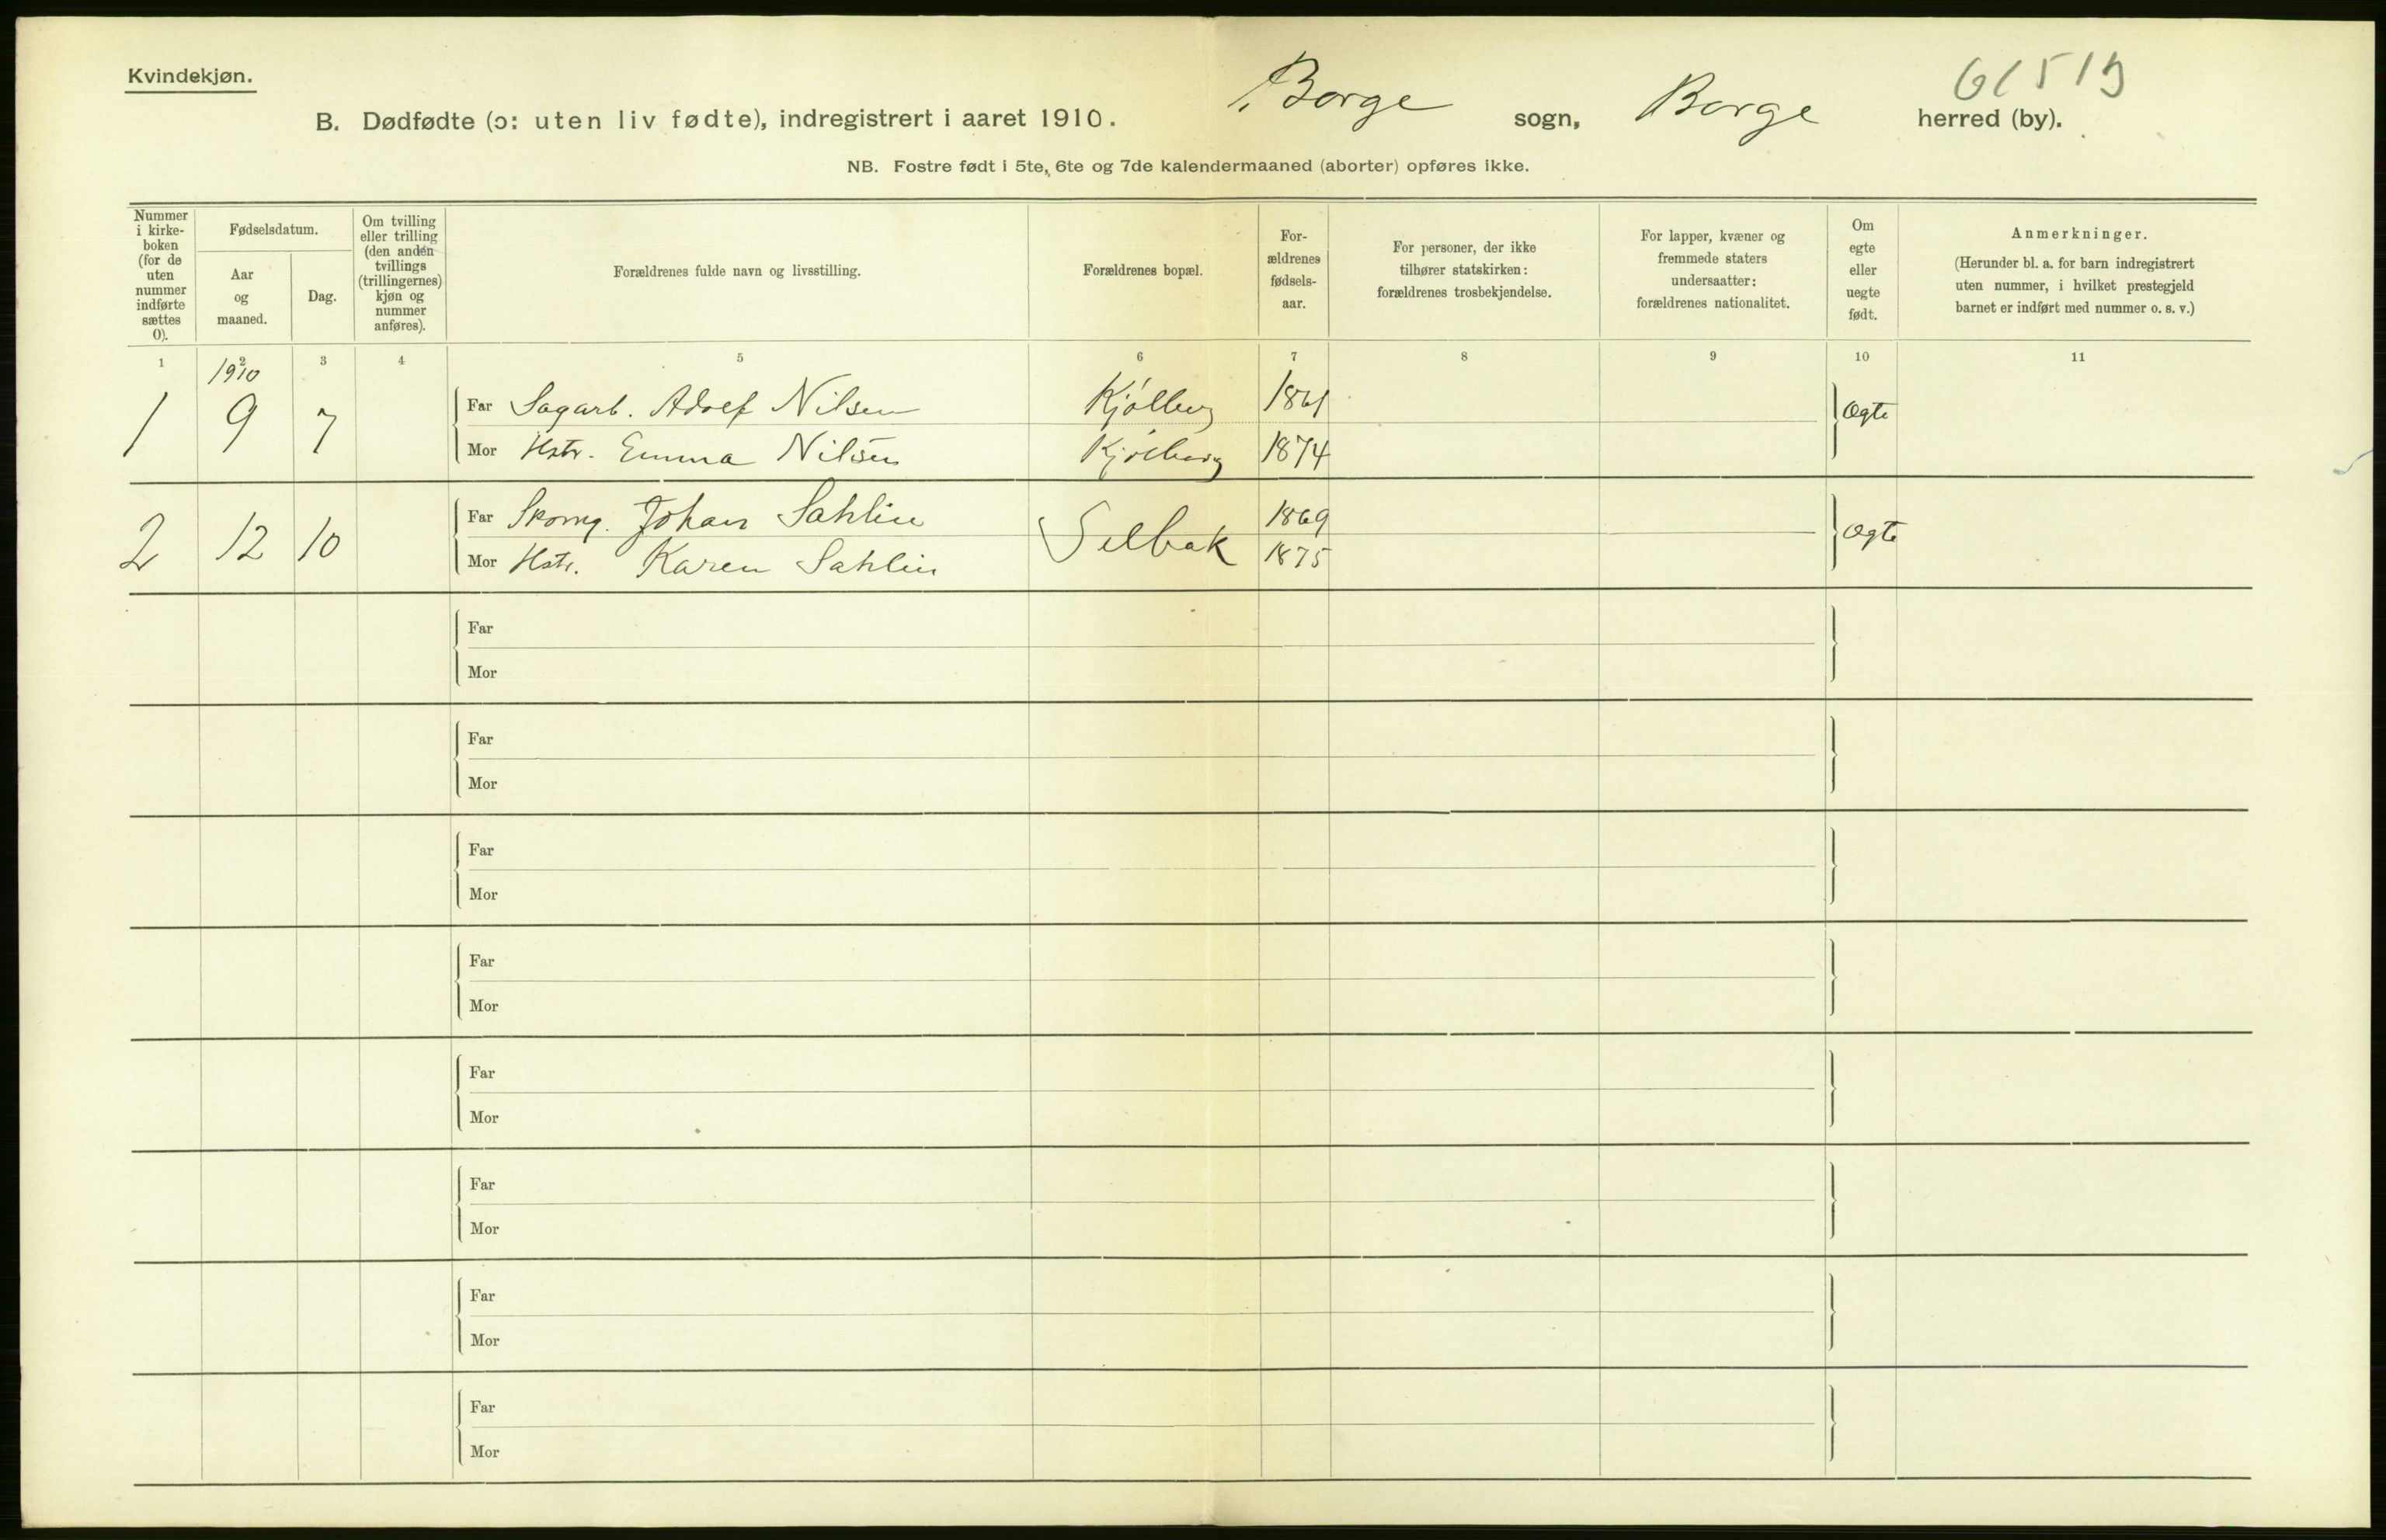 Kvindekjøn.
B. Dødfødte (ɔ: uten liv fødte), indregistrert i aaret 1910. Borge sogn, Borge herred (by).
NB. Fostre født i 5te, 6te og 7de kalendermaaned (aborter) opføres ikke.
Nummer
i kirke-
boken
(for de
uten
nummer
indførte
sættes
0).
Fødselsdatum.
Aar
og
maaned.
Dag.
Om tvilling
eller trilling
(den anden
tvillings
(trillingernes)
kjøn og
nummer
anføres).
Forældrenes fulde navn og livsstilling.
Forældrenes bopæl.
For-
ældrenes
fødsels-
aar.
For personer, der ikke
tilhører statskirken:
forældrenes trosbekjendelse.
For lapper, kvæner og
fremmede staters
undersaatter:
forældrenes nationalitet.
Om
egte
eller
uegte
født.
Anmerkninger.
(Herunder bl. a. for barn indregistrert
uten nummer, i hvilket prestegjeld
barnet er indført med nummer o. s. v.)
1 2 3 4 5 6 7 8 9 10 11
1910
1 9 7 Far Sagarb. Adolf Nilsen Kjølberg 1861 Ægte
Mor Hstr. Emma Nilsen Kjølberg 1874
2 12 10 Far Skomg. Johan Sahlin Selbak 1869 Ægte
Mor Hstr. Karen Sahlin 1875
Far
Mor
Far
Mor
Far
Mor
Far
Mor
Far
Mor
Far
Mor
Far
Mor
Far
Mor